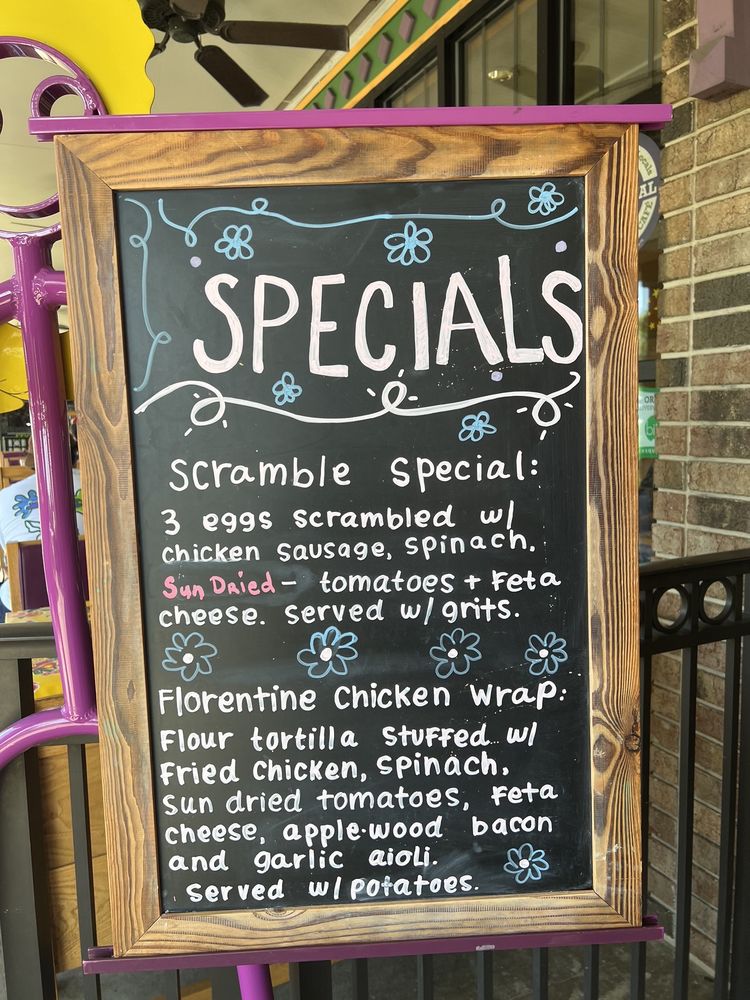 SPECIALS
Scramble Special:
3 eggs scrambled w/
chicken sausage, spinach,
Sun Dried - tomatoes + Feta
cheese. served w/ grits.
Florentine Chicken Wrap:
Flour tortilla stuffed w/
Fried Chicken, spinach,
Sun dried tomatoes, Feta
cheese, apple-wood bacon
and garlic aioli.
Served w/ potatoes.